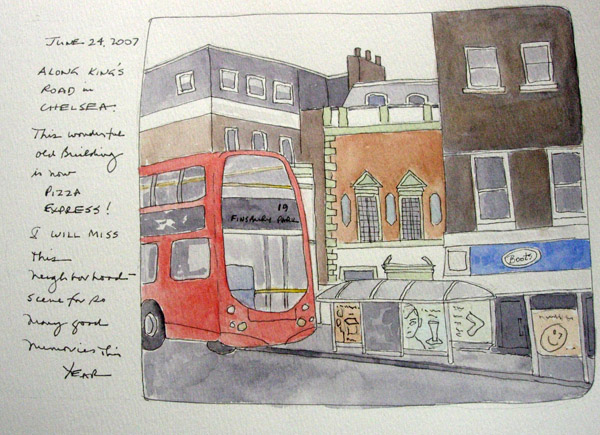 JUNE 24, 2007
ALONG KING'S
ROAD in
CHELSEA.
This wonderful
old Building
is now
PIZZA
EXPRESS!
I WILL MISS
this
neighborhood-
scene for so
many good
memories this
YEAR
19
FINSBURY PARK
Boots